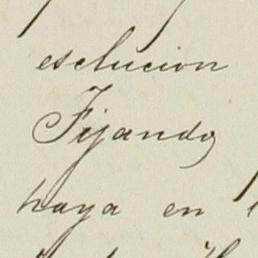 esclucion
Fijando
haya en